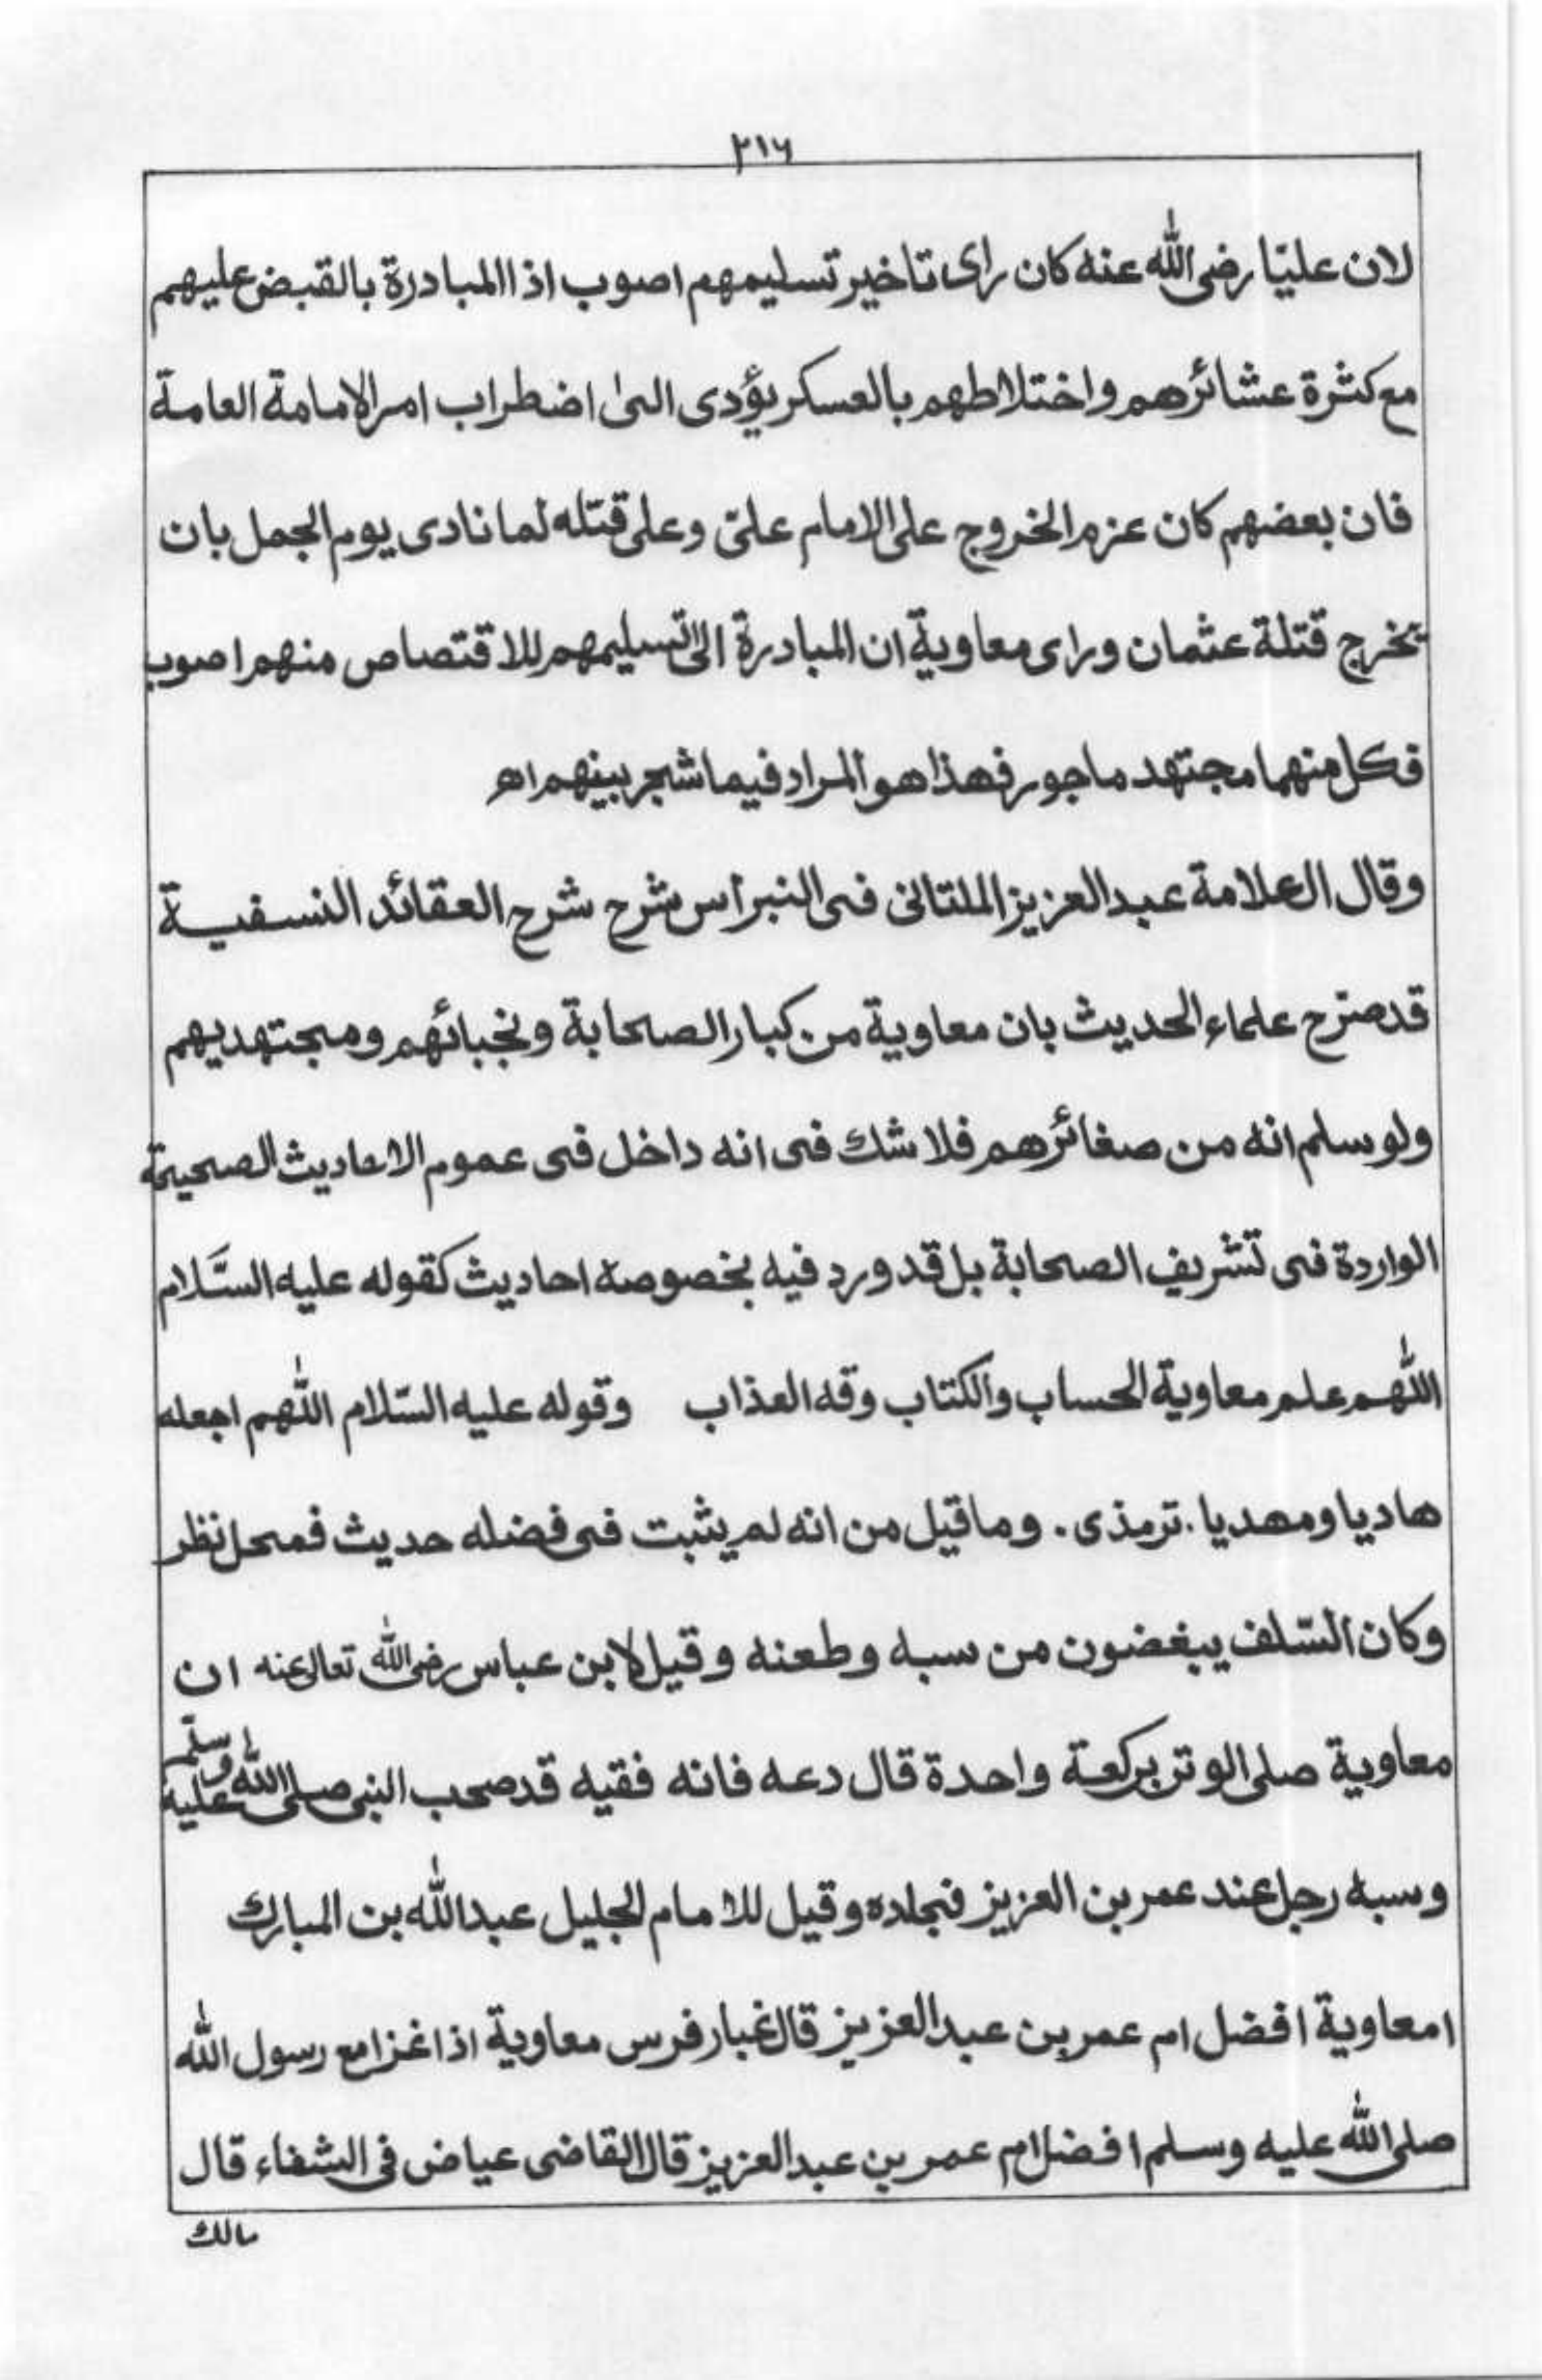 ۲۱۶
لان عليّا رضی الله عنه كان رای تاخير تسليمهم اصوب اذ المبادرة بالقبض عليهم
مع كثرة عشائرهم واختلاطهم بالعسكر يؤدی الی اضطراب امر الامامة العامة
فان بعضهم كان عزم الخروج علی الامام علیّ وعلی قتله لما نادی يوم الجمل بان
تخرج قتلة عثمان ورای معاوية ان المبادرة الی تسليمهم للاقتصاص منهم اصوب
فكل منهما مجتهد ماجور فهذا هو المراد فيما شجر بينهم اھ
وقال العلامة عبد العزيز الملتانی فی النبراس شرح شرح العقائد النسفية
قد صرّح علماء الحديث بان معاوية من كبار الصحابة ونجبائهم ومجتهديهم
ولو سلم انه من صغائرهم فلا شك فی انه داخل فی عموم الاحاديث الصحيحة
الواردة فی تشريف الصحابة بل قد ورد فيه بخصوصه احاديث كقوله عليه السَّلام
اللّٰهم علم معاوية الحساب والكتاب وقه العذاب وقوله عليه السّلام اللّٰهم اجعله
هاديا ومهديا. ترمذی. وما قيل من انه لم يثبت فی فضله حديث فمحل نظر
وكان السّلف يبغضون من سبه وطعنه وقيل لابن عباس رضی الله تعالی عنه ان
معاوية صلی الوتر بركعة واحدة قال دعه فانه فقيه قد صحب النبی صلی الله عليه وسلّم
وسبه رجل عند عمر بن العزيز فجلده وقيل للامام الجليل عبد الله بن المبارك
امعاوية افضل ام عمر بن عبد العزيز قال غبار فرس معاوية اذا غزا مع رسول الله
صلی الله عليه وسلم افضل ام عمر بن عبد العزيز قال القاضی عياض فی الشفاء قال
مالك